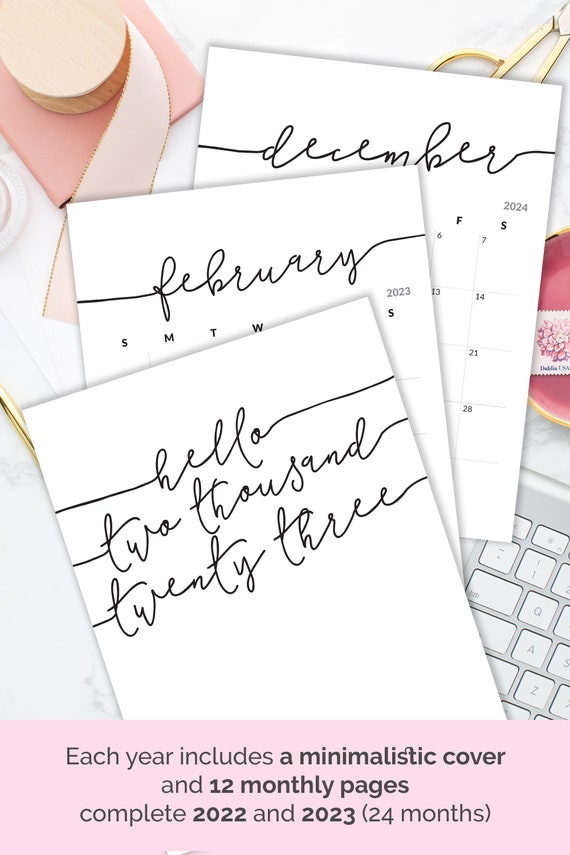 december
2024
F S
6 7
13 14
21
28
february
2023
S M T W S
hello
two thousand
twenty three
Dahlia USA
Each year includes a minimalistic cover
and 12 monthly pages
complete 2022 and 2023 (24 months)